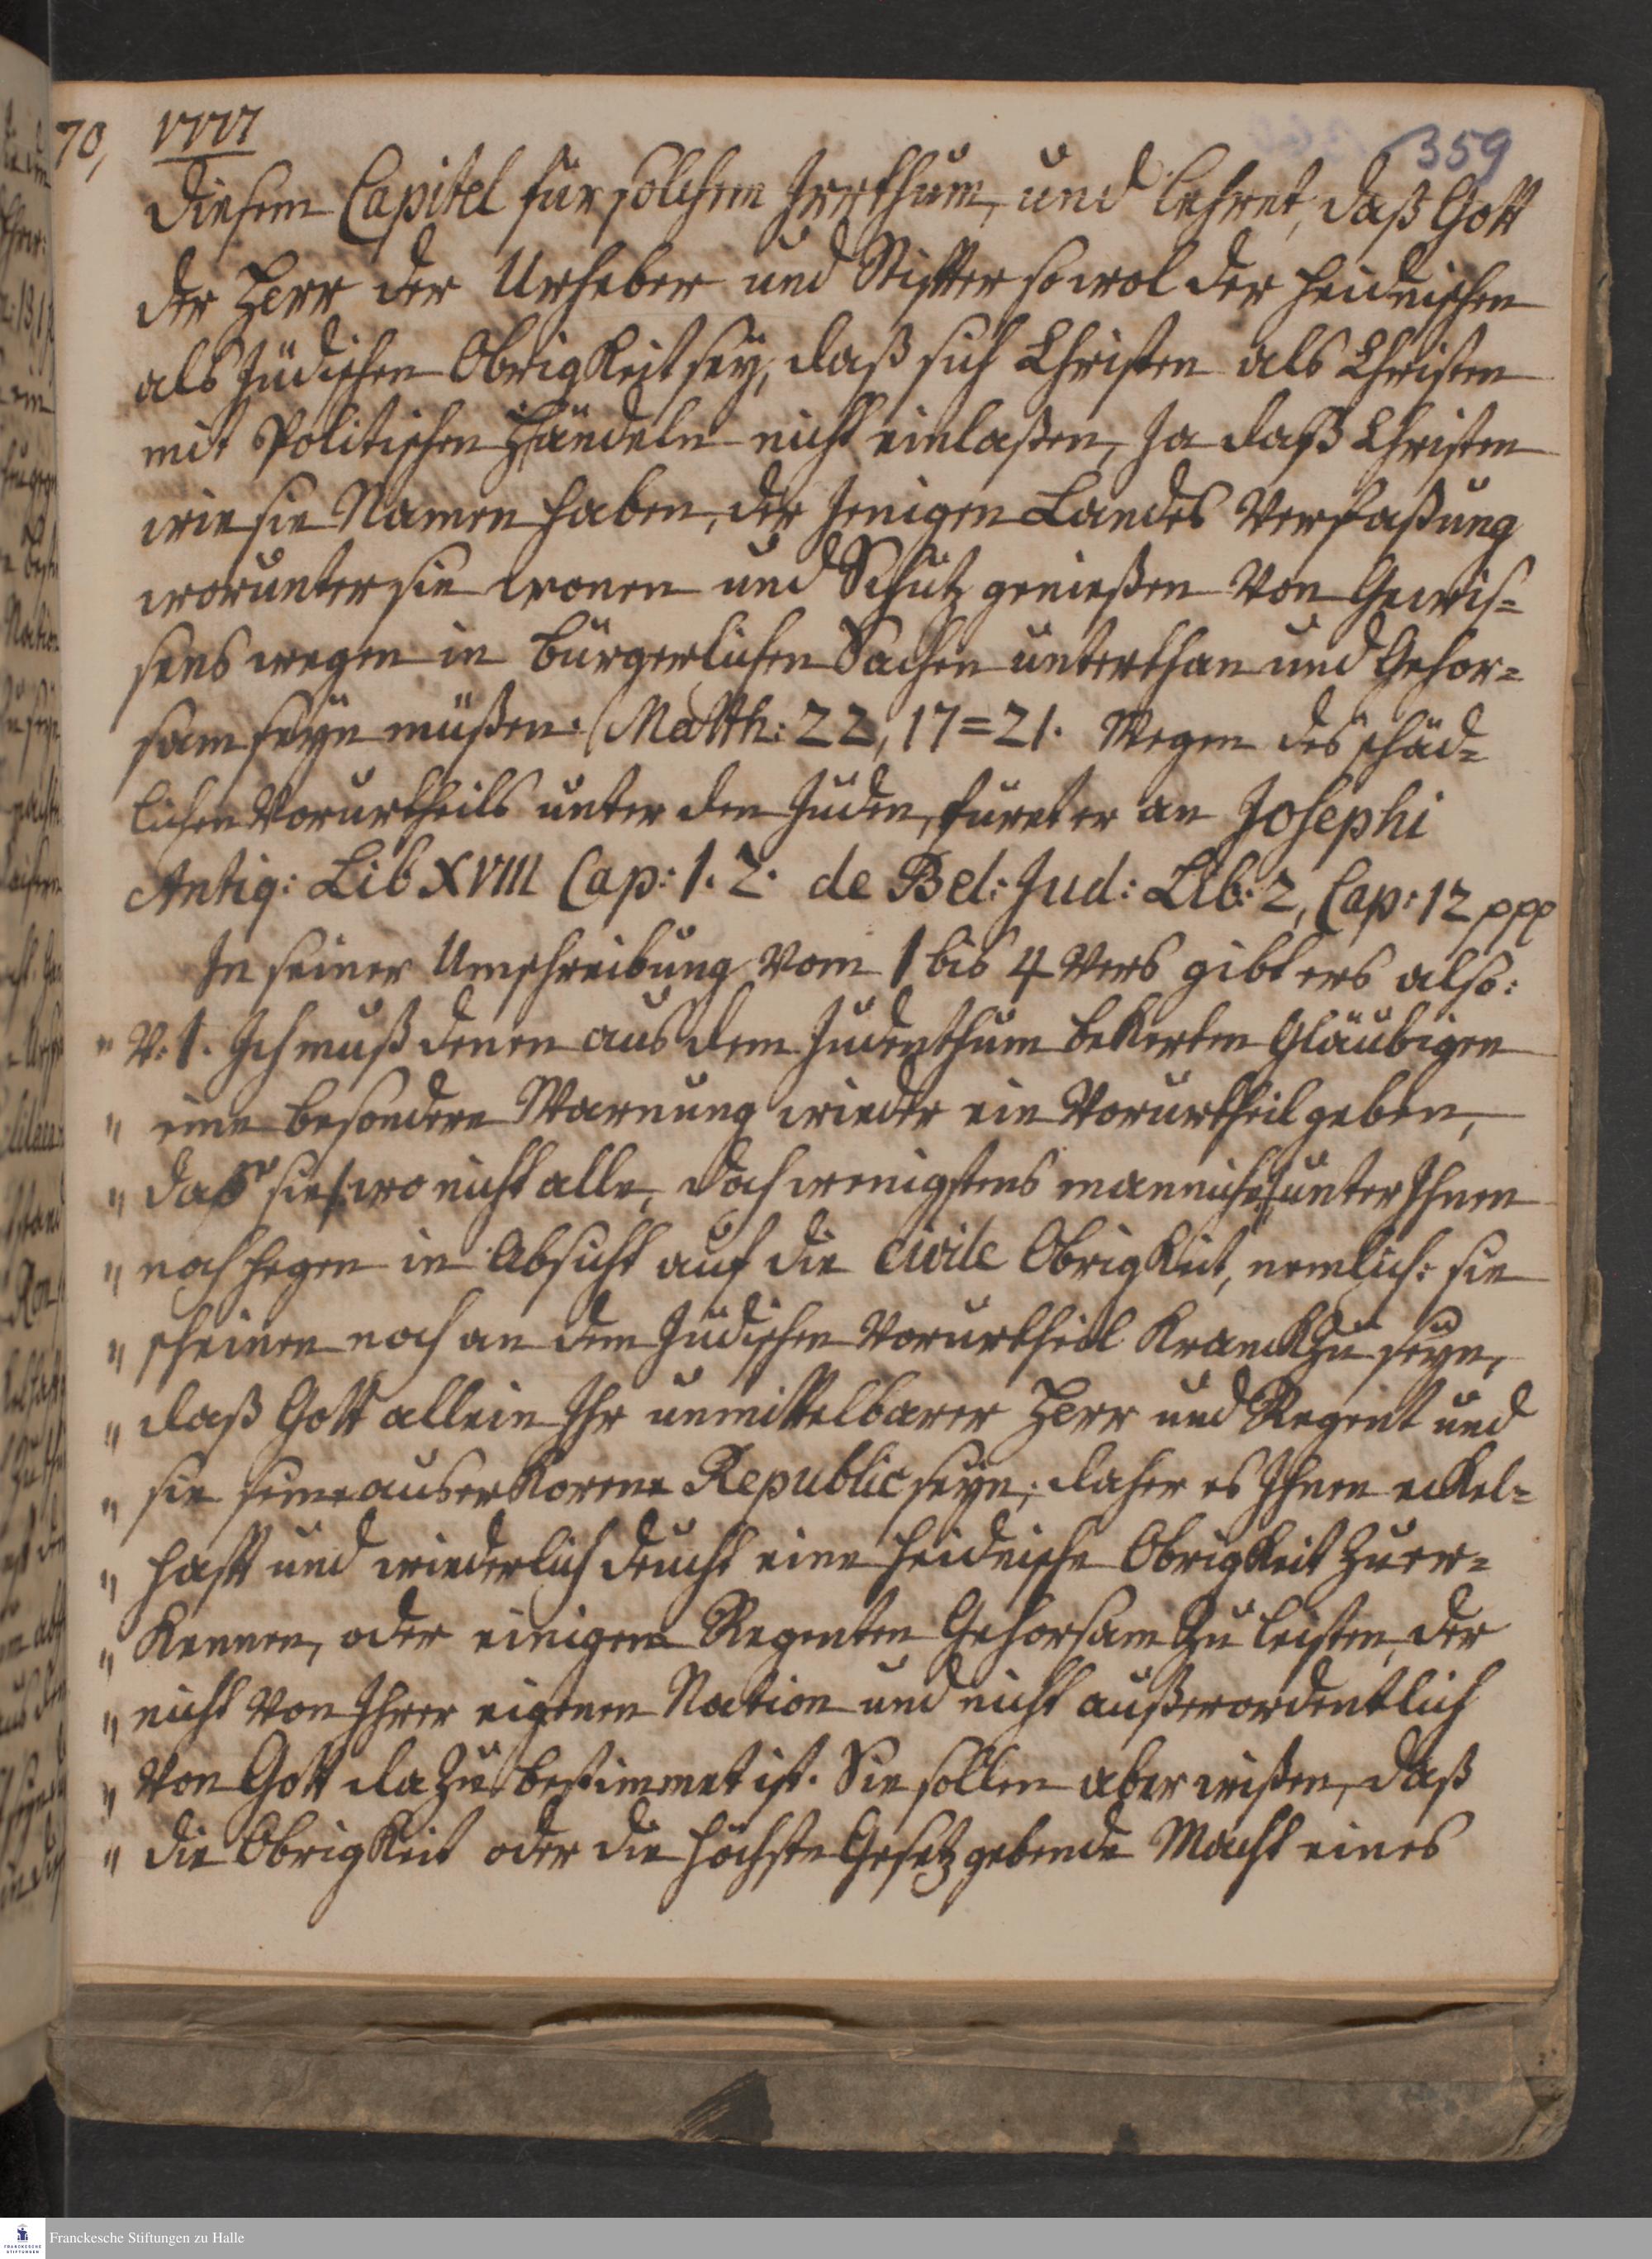 70,
1777
359
diesem Capitel für solchem Irrthum, und lehret, daß Gott
der Herr der Urheber und Stifter sowol der heidnischen
als Jüdischen Obrigkeit sey, daß sich Christen als Christen
mit Politischen Händeln nicht einlaßen, Ja daß Christen
wie sie Namen haben, der Jenigen Landes Verfaßung
worunter sie wonen und Schutz genießen von Gewis=
sens wegen in bürgerlichen Sachen unterthan und Gehor=
sam seyn müßen. (Matth: 22, 17=21. Wegen des schäd=
lichen Vorurtheils unter den Juden, füret er an Josephi
Antiq: Lib XVIII Cap: 1. 2. de Bel: Jud: Lib: 2, Cap: 12 ppp
In seiner Umschreibung vom 1 bis 4 Vers gibt ers also:
" V: 1. Ich muß denen aus dem Judenthum bekerten Gläubigen
" eine besondere Warnung wieder ein Vorurtheil geben,
" daß sie (wo nicht alle, doch wenigstens manniche) unter Ihnen
" noch hegen in Absicht auf die civile Obrigkeit, nemlich: sie
" scheinen noch an dem Jüdischen Vorurtheil Kranck zu seyn,
" daß Gott allein Ihr unmittelbarer Herr und Regent und
" sie seine auserkorene Republic seyn; daher es Ihnen eckel=
" haft und wiederlich deucht eine heidnische Obrigkeit zu er=
" kennen, oder einigem Regenten Gehorsam zu leisten, der
" nicht von Ihrer eigenen Nation und nicht außerordentlich
" von Gott dazu bestimmet ist. Sie sollen aber wißen, daß
" die Obrigkeit oder die höchste Gesetz gebende Macht eines
Franckesche Stiftungen zu Halle